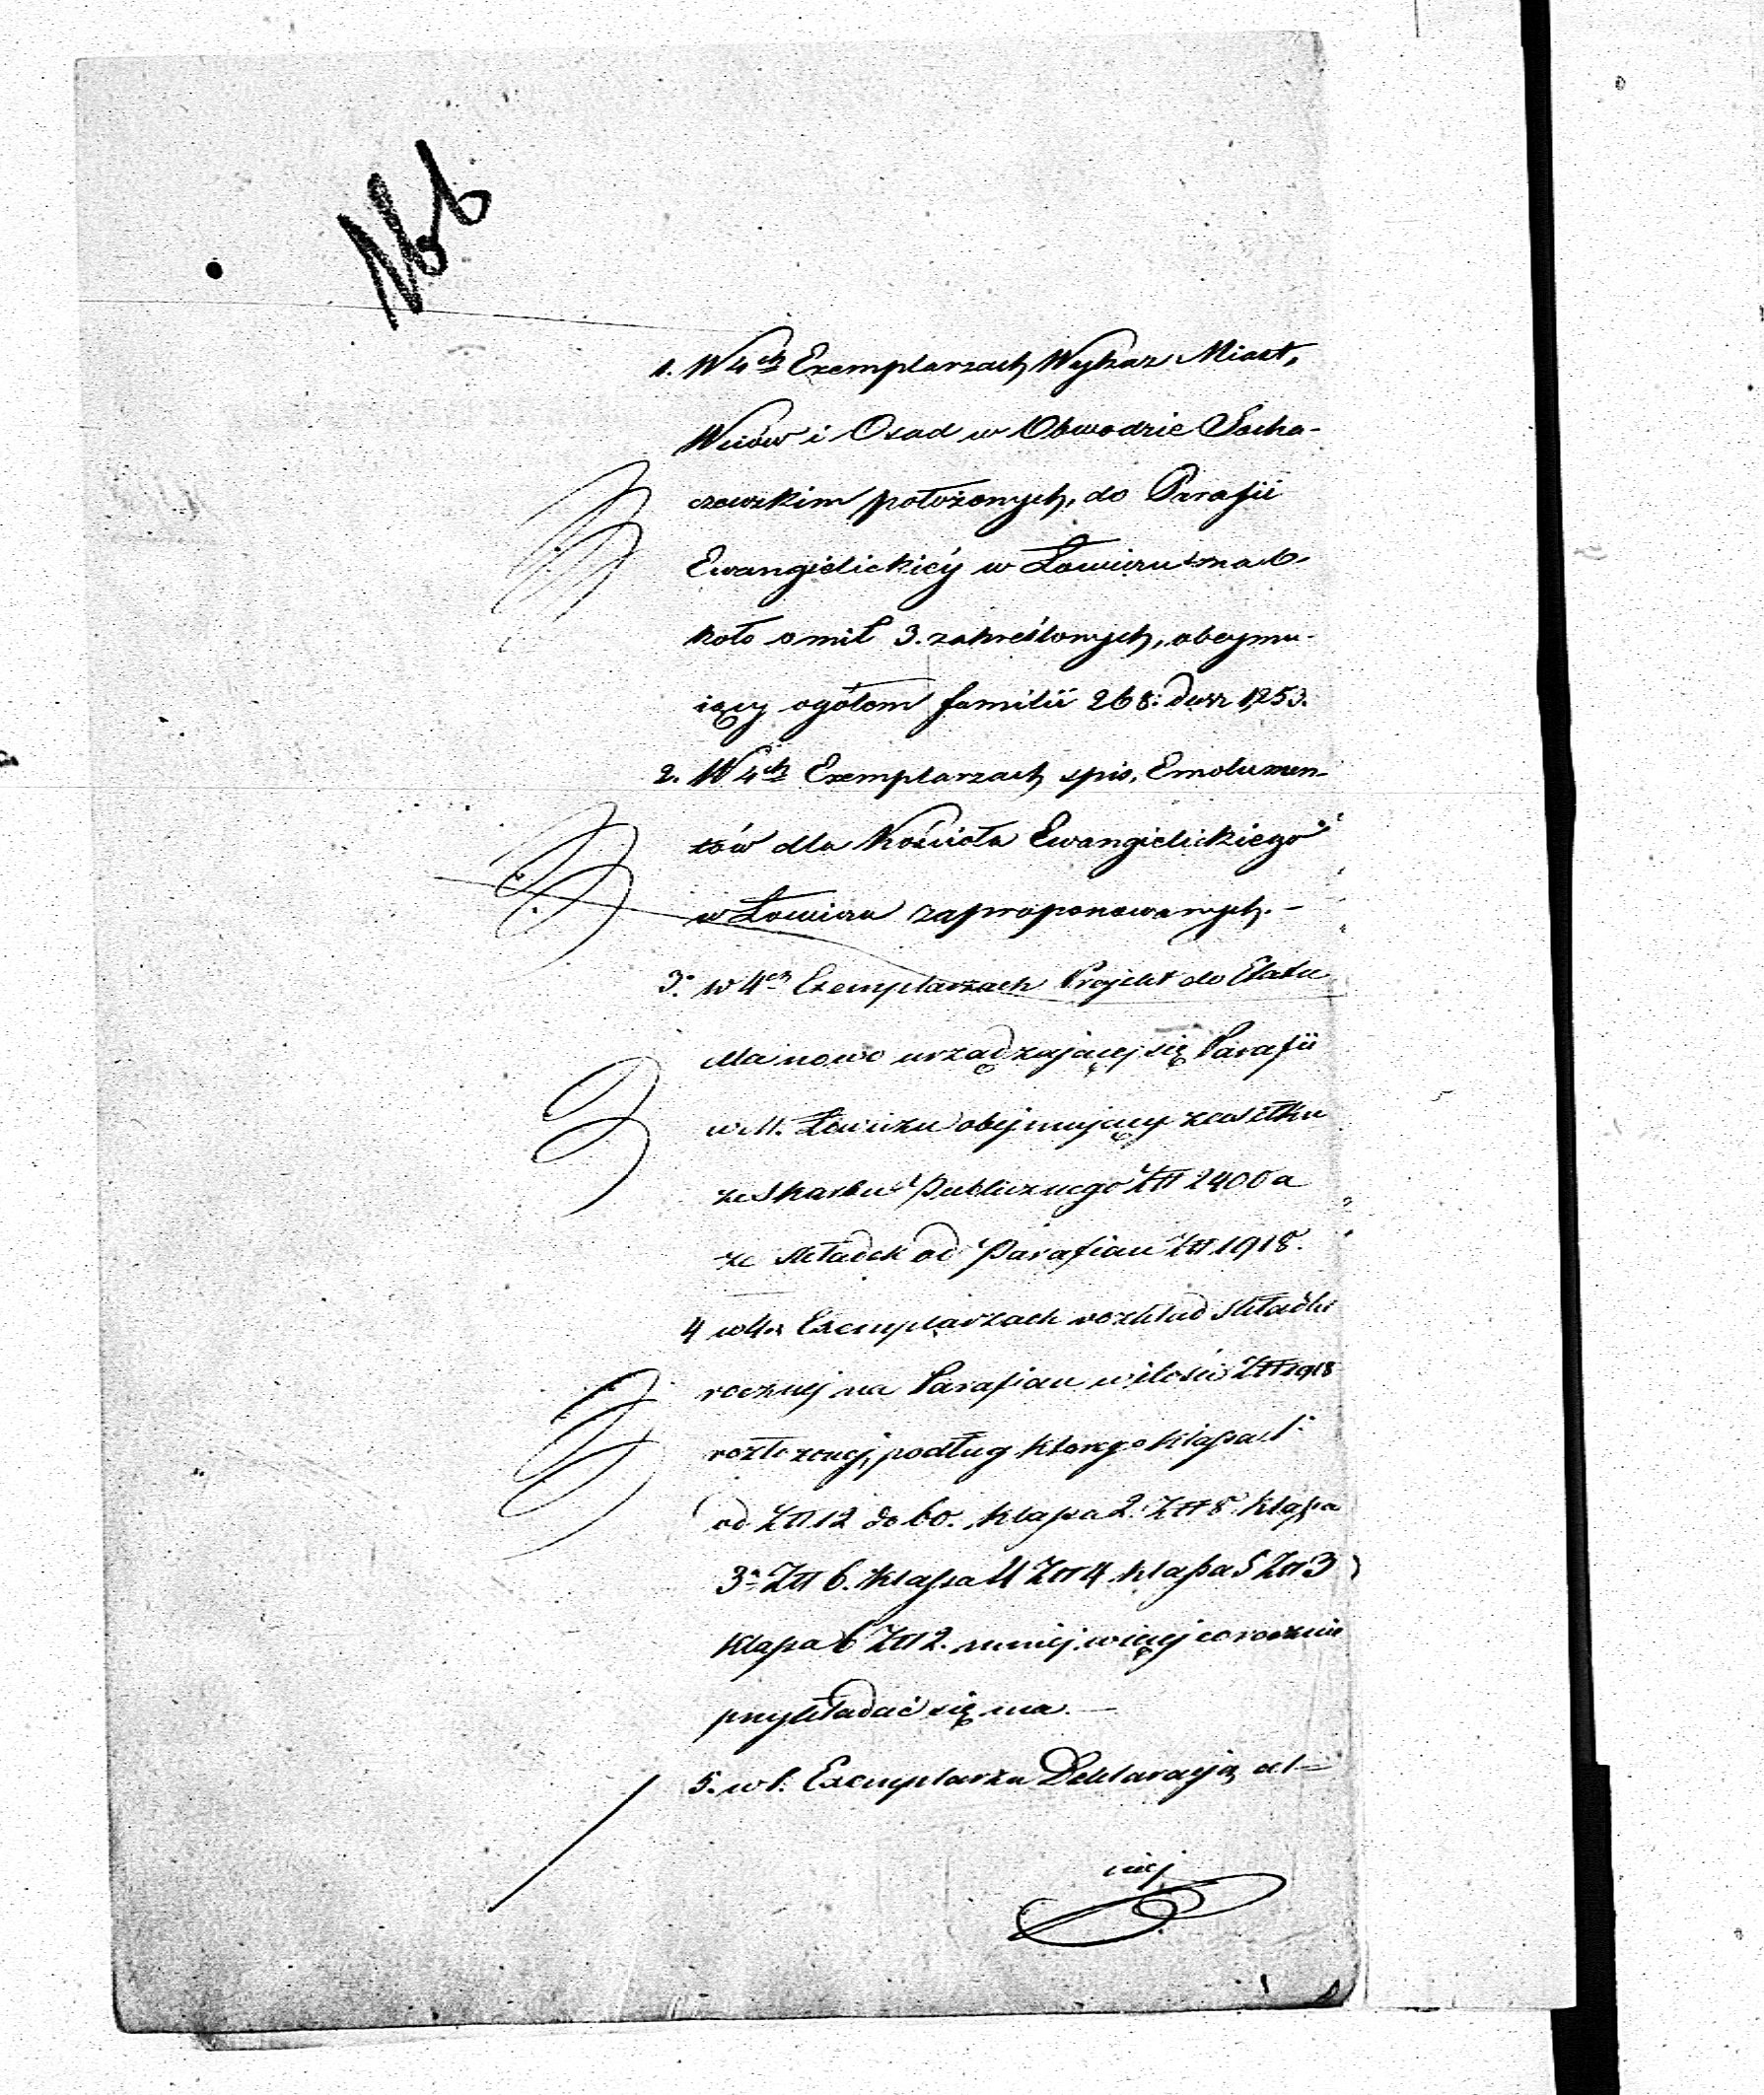 No 6
1. W 4ch Exemplarzach Wykaz Miast,
Wsiów i Osad w Obwodzie Socha-
czewskim położonych, do Parafii
Ewangielickiéy w Łowiczu na
koło o mil 3. zakreślonych, obeymu-
iący ogółem familii 268. dusz 1253.
2. W 4ch Exemplarzach spis, Emolumen-
tów dla Kościoła Ewangielickiego
w Łowiczu zaproponowanych. -
3. w 4ch Exemplarzach Projekt do Etatu
dla nowo urządzającej się Parafii
w M. Łowiczu obejmujący zasiłku
ze Skarbu Publicznego Złł 2400 a
ze składek od Parafian Złł 1918.
4 w 4ch Exemplarzach rozkład składki
rocznej na Parafian w ilości Złł 1918
rozłożonej, podług którego klassa 1.
od Złł 12 do 60. klassa 2. Złł 8. klassa
3a Złł 6. klassa 4 Złł 4. klassa 5 Złł 3
klassa 6 Złł 2. mniej więcej corocznie
przykładać się ma. —
5. w 1. Exemplarzu Deklaracyą